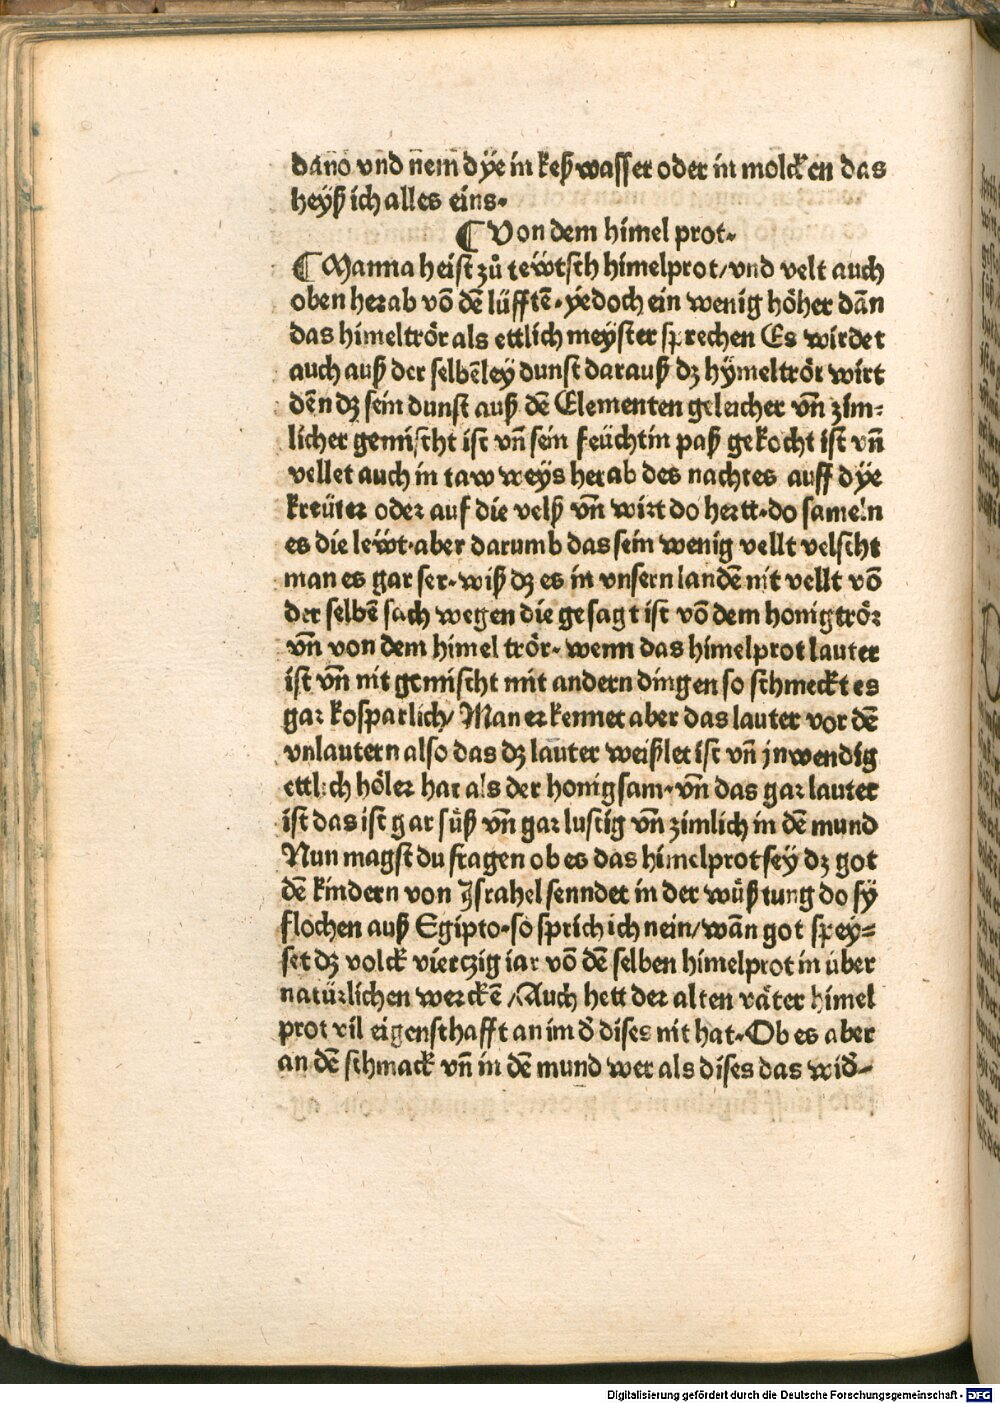 dāno vnd nem dÿe in keßwasser oder in molcken das
heyß ich alles eins.
¶ Von dem himel prot.
¶ Manna heist zů tewtsch himelprot/vnd velt auch
oben herab võ dẽ lüfftẽ. yedoch ein wenig höher dãn
das himeltrör als ettlich meyster sprechen Es wirdet
auch auß der selbẽley dunst darauß dz hymeltrör wirt
dẽn dz sein dunst auß dẽ Elementen geleicher vñ zim-
licher gemischt ist vñ sein feüchtin paß gekocht ist vñ
vellet auch in taw weys herab des nachtes auff dye
kreüter oder auf die velß vñ wirt do hertt. do sameln
es die lewt. aber darumb das sein wenig vellt velscht
man es gar ser. wiß dz es in vnsern landẽ nit vellt võ
der selbẽ sach wegen die gesagt ist võ dem honigtrör
vñ von dem himel trör. wenn das himelprot lauter
ist vñ nit gemischt mit andern dingen so schmeckt es
gar kosparlich/ Man erkennet aber das lauter vor dẽ
vnlautern also das dz lauter weißlet ist vñ jnwendig
ettlich höler hat als der honigsam. vñ das gar lauter
ist das ist gar süß vñ gar lustig vñ zimlich in dẽ mund
Nun magst du fragen ob es das himelprot sey dz got
dẽ kindern von Israhel senndet in der wüßtung do sy
flochen auß Egipto. so sprich ich nein/wãn got spey-
set dz volck viertzig iar võ dẽ selben himelprot in über
natürlichen werckẽ /Auch hett der alten väter himel
prot vil eigenschafft an im d̃ dises nit hat. Ob es aber
an dẽ schmack vñ in dẽ mund wer als dises das wid̃-
Digitalisierung gefördert durch die Deutsche Forschungsgemeinschaft - DFG